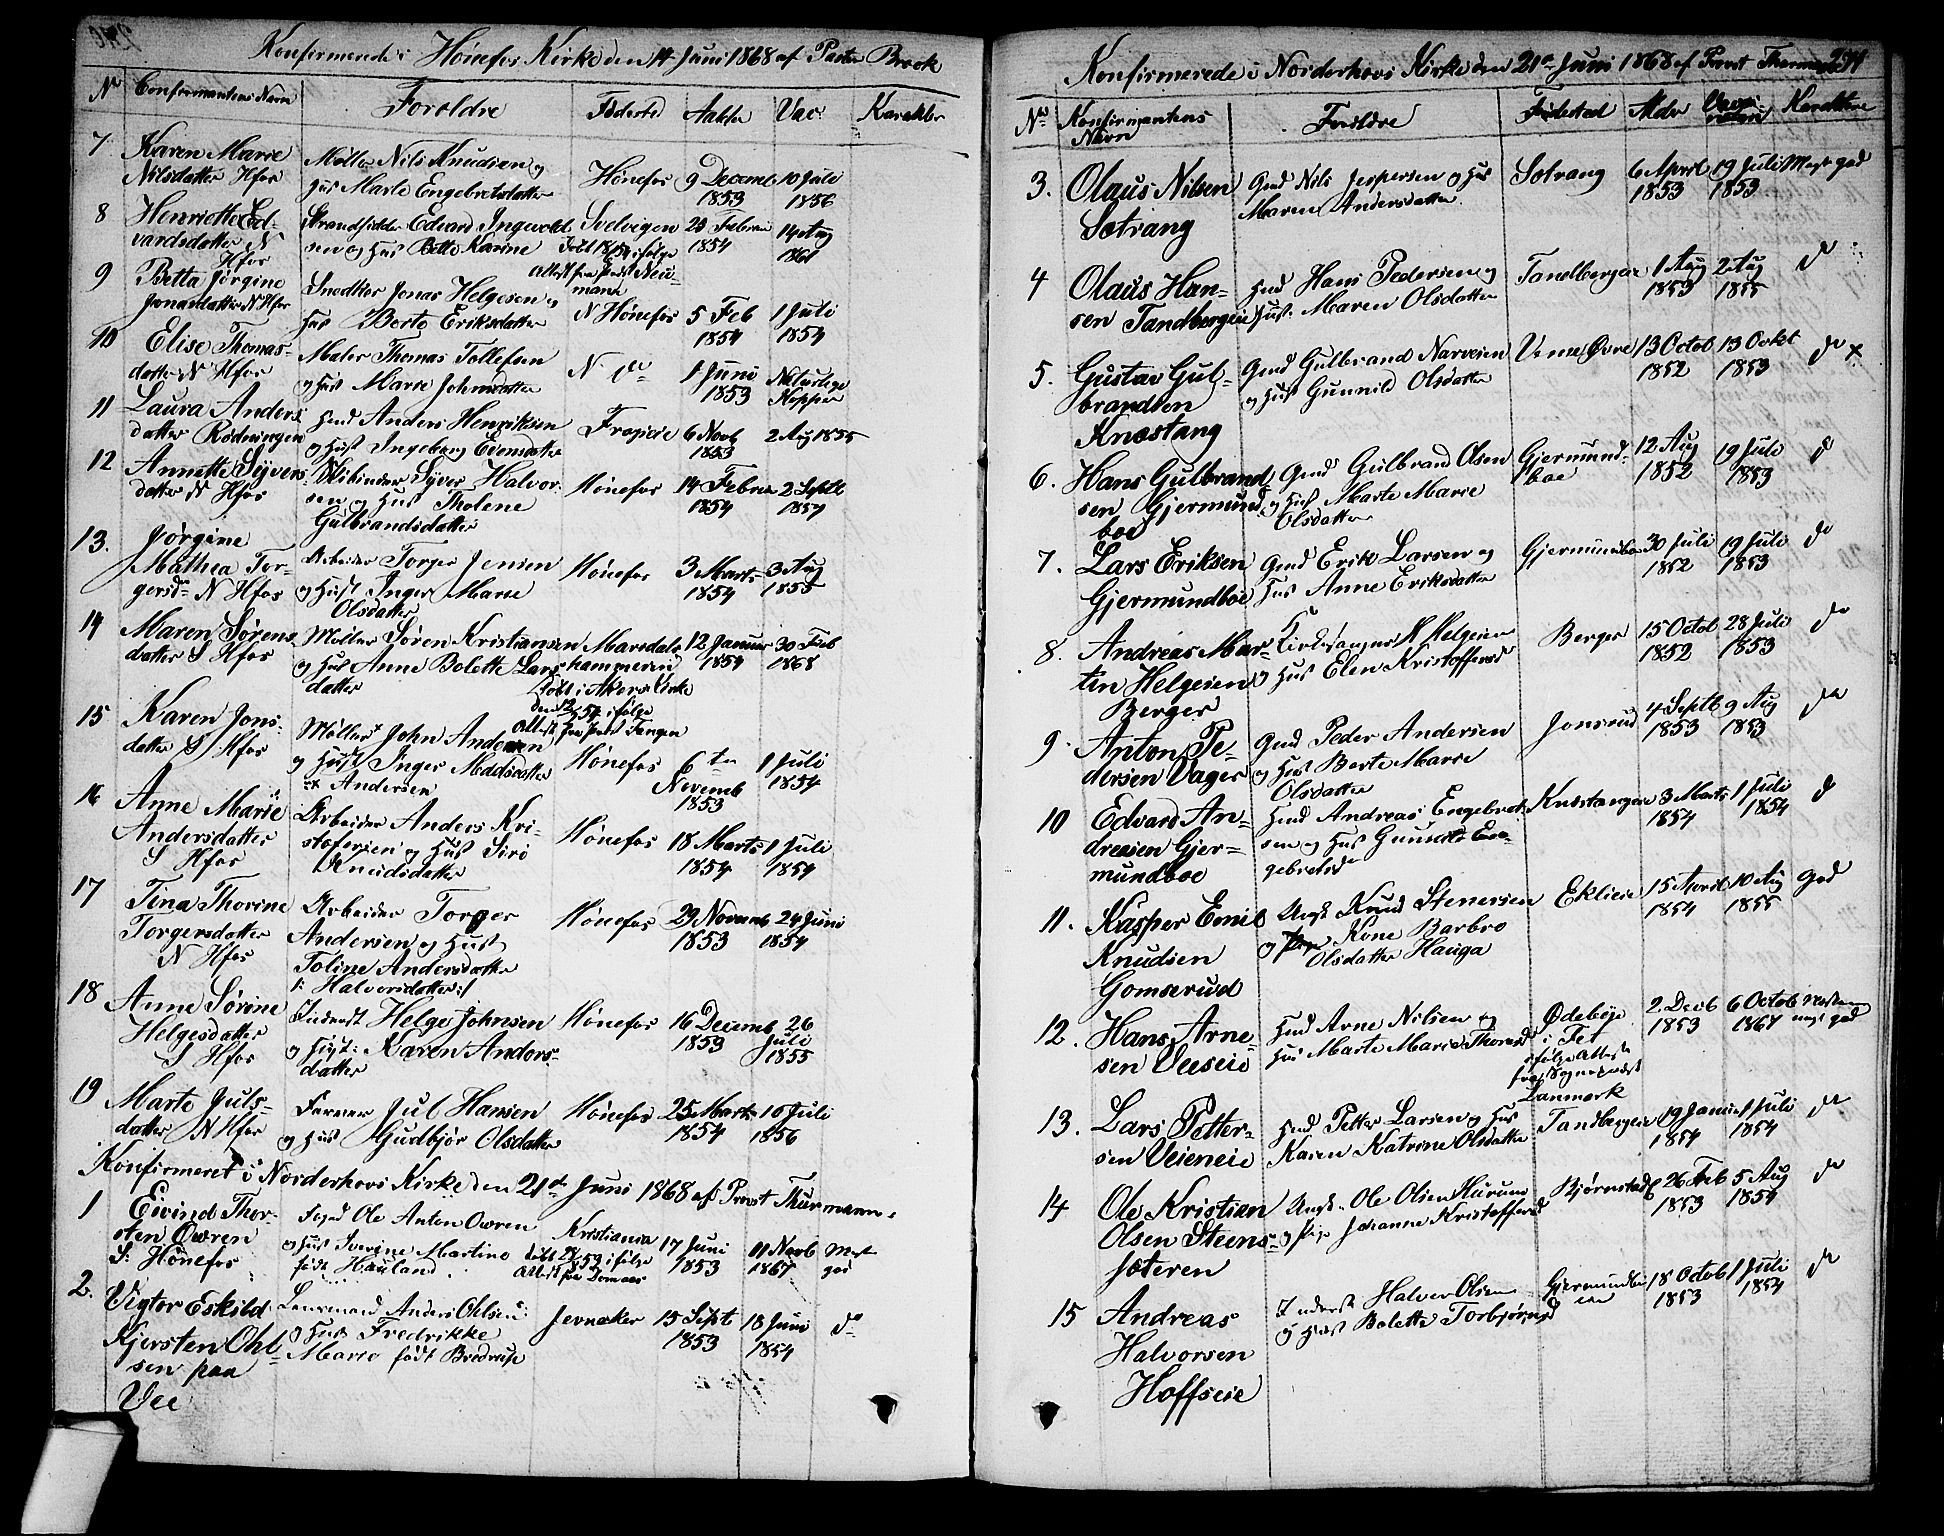 Konfirmerede i Hönefos Kirke den 14 Juni 1868 af Pastor Brock
No Confirmantens Navn Foroldre Födested Aalder Vac: Karakter
7 Karen Marie
Nilsdatter Hfos
Möller Nils Knudsen og
Hus Marte Engebretsdatter
Hönefos 9 Decemb 10 Juli
1853 1856
8 Henriette Ed-
vardsdatter N
Hfos
Strandsidder Edvard Ingevold
sen og Hus Bette Karine
Svelvigen 23 Februar 14 Aug
1854 1861
9 Betta Jörgine
Jonasdatter N Hfos
Snedker Jonas Helgesen og
Hus Berte Eriksdatter
N Hönefos 5 Feb 1 Juli
1854 1854
10 Elise Thomas-
datter N Hfos
Maler Thomas Tollefsen
og Hus Marie Johnsdatter
N do 1 Juni Naturlige
1853 Kopper
11 Laura Anders
datter Rödningen
Husd Anders Henriksen
og Hust Ingeborg Evensdatter
6 Novb 2 Aug 1855
1853
12 Annette Syvers
datter N Hfos
Syver Halvor-
sen og Hus Tholene
Gulbrandsdatter
Hönefos 14 Februar 2 Septb
1854 1857
13. Jörgine
Mathea Tor-
gersdr N Hfos
Arbeider Torger Jensen
og Hust Inger Marie
Olsdatter
Hönefos 3 Marts 3 Aug
1854 1855
14 Maren Sörens
datter S Hfos
Möller Sören Kristiansen
og Hus Anne Bolette Lars
datter
Maridals
hammeren
12 Januar 30 Feb
1854 1868
15 Karen Jons-
datter S Hfos
Möller John Andersen
og Hust Inger Madsdatter
Andersen
Hönefos 6te 1 Juli
Novemb 1854
1853
16 Anne Marie
Andersdatter
S Hfos
Arbeider Anders Kri-
stofersen og Hus Siri
Knudsdatter
Hönefos 18 Marts 1 Juli
1854 1854
17 Tina Thorine
Torgersdatter
N Hfos
Arbeider Torger
Andersen og Hust
Toline Andersdatter
/: Halvorsdatter :/
Hönefos 29 Novemb 24 Juni
1853 1854
18 Anne Sörine
Helgesdatter
S Hfos
Inderst Helge Johnsen
og Hust: Karen Anders-
datter
Hönefos 16 Decemb 26
1853 Juli
1855
19 Marte Juls-
datter N Hfos
Farver Jul Hansen
og Hus Gudbjör Olsdatter
Hönefos 25 Marts 10 Juli
1854 1856
Konfirmeret i Norderhovs Kirke den 21de Juni 1868 af Provst Thurmann.
1 Eivind Thor-
sten Owren
S: Hönefos
Foged Ole Anton Owren
og Hus Iverine Martine
födt Hauland
Kristiania 17 Juni 11 Novb Meget
1853 1867 god
2. Vigtor Eskild
Kjersten Ohl-
sen paa
Vee
Lensmand Anders Ohlsen
og Hus Fredrikke
Marie födt Bredrup
Jevnaker 15 Sept 18 Juni do
1853 1854
Konfirmerede i Norderhovs Kirke den 21de Juni 1868 af Provst Thurmann 274
No Konfirmantens
Navn
Foroldre Födested Alder Karaktere
3. Olaus Nilsen
Sætrang
Gmd Nils Jespersen og Hus
Maren Andersdatter
Sætrang 6 April 19 Juli Meget god
1853 1853
4 Olaus Han-
sen Tandbergeie
Hmd Hans Pedersen og
Hust: Maren Olsdatter
Tandbergeie 1 Aug 2 Aug do
1853 1855
5. Gustav Gul-
brandsen
Knæstang
Gmd Gulbrand Narvesen
og Hust Gunnild Olsdatter
Veme Øvre 13 Octob 13 Ockt do x
1852 1853
6. Hans Gulbrand-
sen Gjermund
boe
Gmd Gulbrand Olsen
og Hus Marte Marie
Olsdatter
Gjermund-
boe
12 Aug 19 Juli do
1852 1853
7. Lars Eriksen
Gjermundboe
Gmd Erik Larsen og
Hus Anne Eriksdatter
Gjermundboe 30 Juli 19 Juli do
1852 1853
8. Andreas Mar-
tin Helgesen
Berger
Kirkesanger H Helgesen
og Hus Elen Kristoffersd
Berger 15 Octob 28 Juli do
1852 1853
9. Anton Pe-
dersen Vager
Gmd Peder Andersen
og Hus Berte Marie
Olsdatter
Jonsrud 4 Septb 9 Aug do
1853 1853
10 Edvard An-
dreasen Gjer-
mundboe
Hmd Andreas Engebret-
sen og Hus Gunild En-
gebretsd
Knæstangeie 3 Marts 1 Juli do
1854 1854
11. Kasper Emil
Knudsen
Gomserud
Ungk Knud Stenersen
og Kone Barbro
Olsdatter Hauga
Eklieie 15 April 10 Aug god
1854 1855
12. Hans Arne-
sen Veeseie
Hmd Arne Nilsen og
Hus Marte Marie Thorsd
Ødeböje
i Fet
ifölge Attest
fra Sogneprest
Lanmark
2 Decb 6 Octob næsten
1853 1867 meget god
13. Lars Petter-
sen Veieneie
Hmd Petter Larsen og Hus
Karen Katrine Olsdatter
Tandbergeie 19 Januar 1 Juli do
1854 1854
14 Ole Kristian
Olsen Steens-
sæteren
Ungk. Ole Olsen Hurum
og Pige Johanne Kristoffersd
Björnstad 26 Feb 5 Aug do
1853 1854
15 Andreas
Halvorsen
Hoffseie
Inderst Halvor Olsen
og Hus Bolette Torbjörnsd
Gjermundbo
eie
18 Octob 1 Juli do
1853 1854